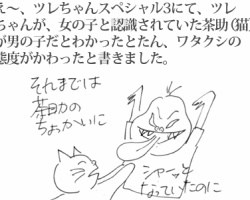 え〜、ツレちゃんスペシャル3にて、ツレ
ちゃんが、女の子と認識されていた茶助(猫)
が男の子だとわかったとたん、ワタクシの
態度がかわったと書きました。
それまでは
茶助の
ちょかいに
シャーッと
なっていたのに